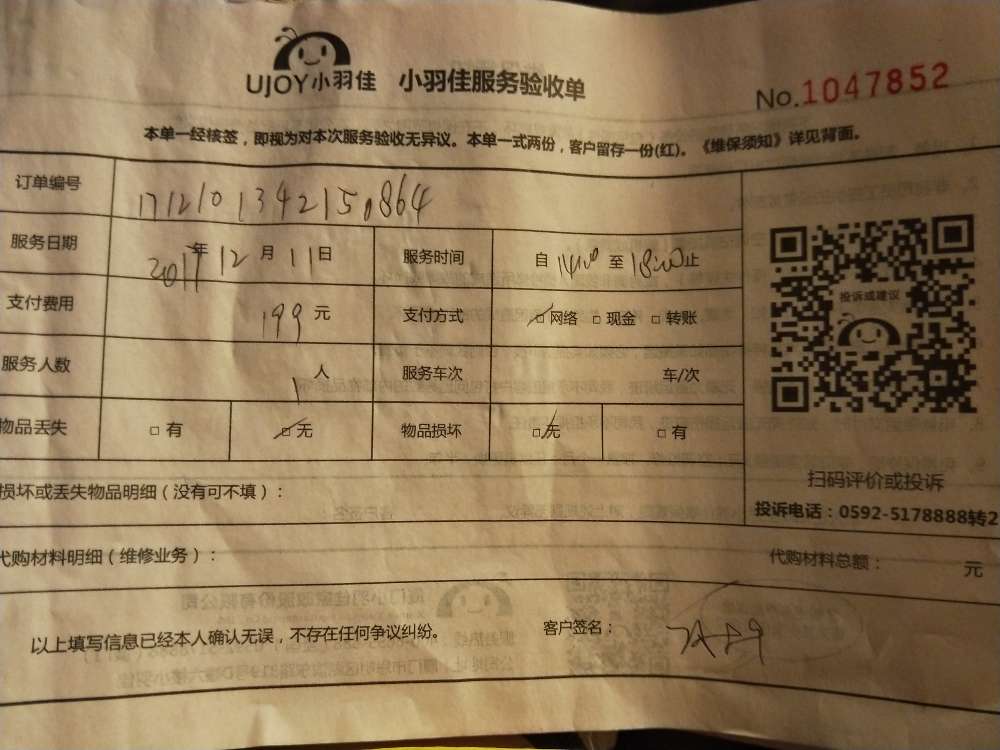 UJOY小羽佳 小羽佳服务验收单 No.1047852
本单一经核签，即视为对本次服务验收无异议。本单一式两份，客户留存一份(红)。《维保须知》详见背面。
订单编号 1712101342150864
服务日期 2017年12月11日 服务时间 自14:00至18:00止
支付费用 199元 支付方式 □网络 □现金 □转账
投诉或建议
服务人数 1人 服务车次 车/次
物品丢失 □有 □无 物品损坏 □无 □有
扫码评价或投诉
损坏或丢失物品明细（没有可不填）：
投诉电话：0592-5178888转2
代购材料明细（维修业务）： 代购材料总额： 元
以上填写信息已经本人确认无误，不存在任何争议纠纷。 客户签名：